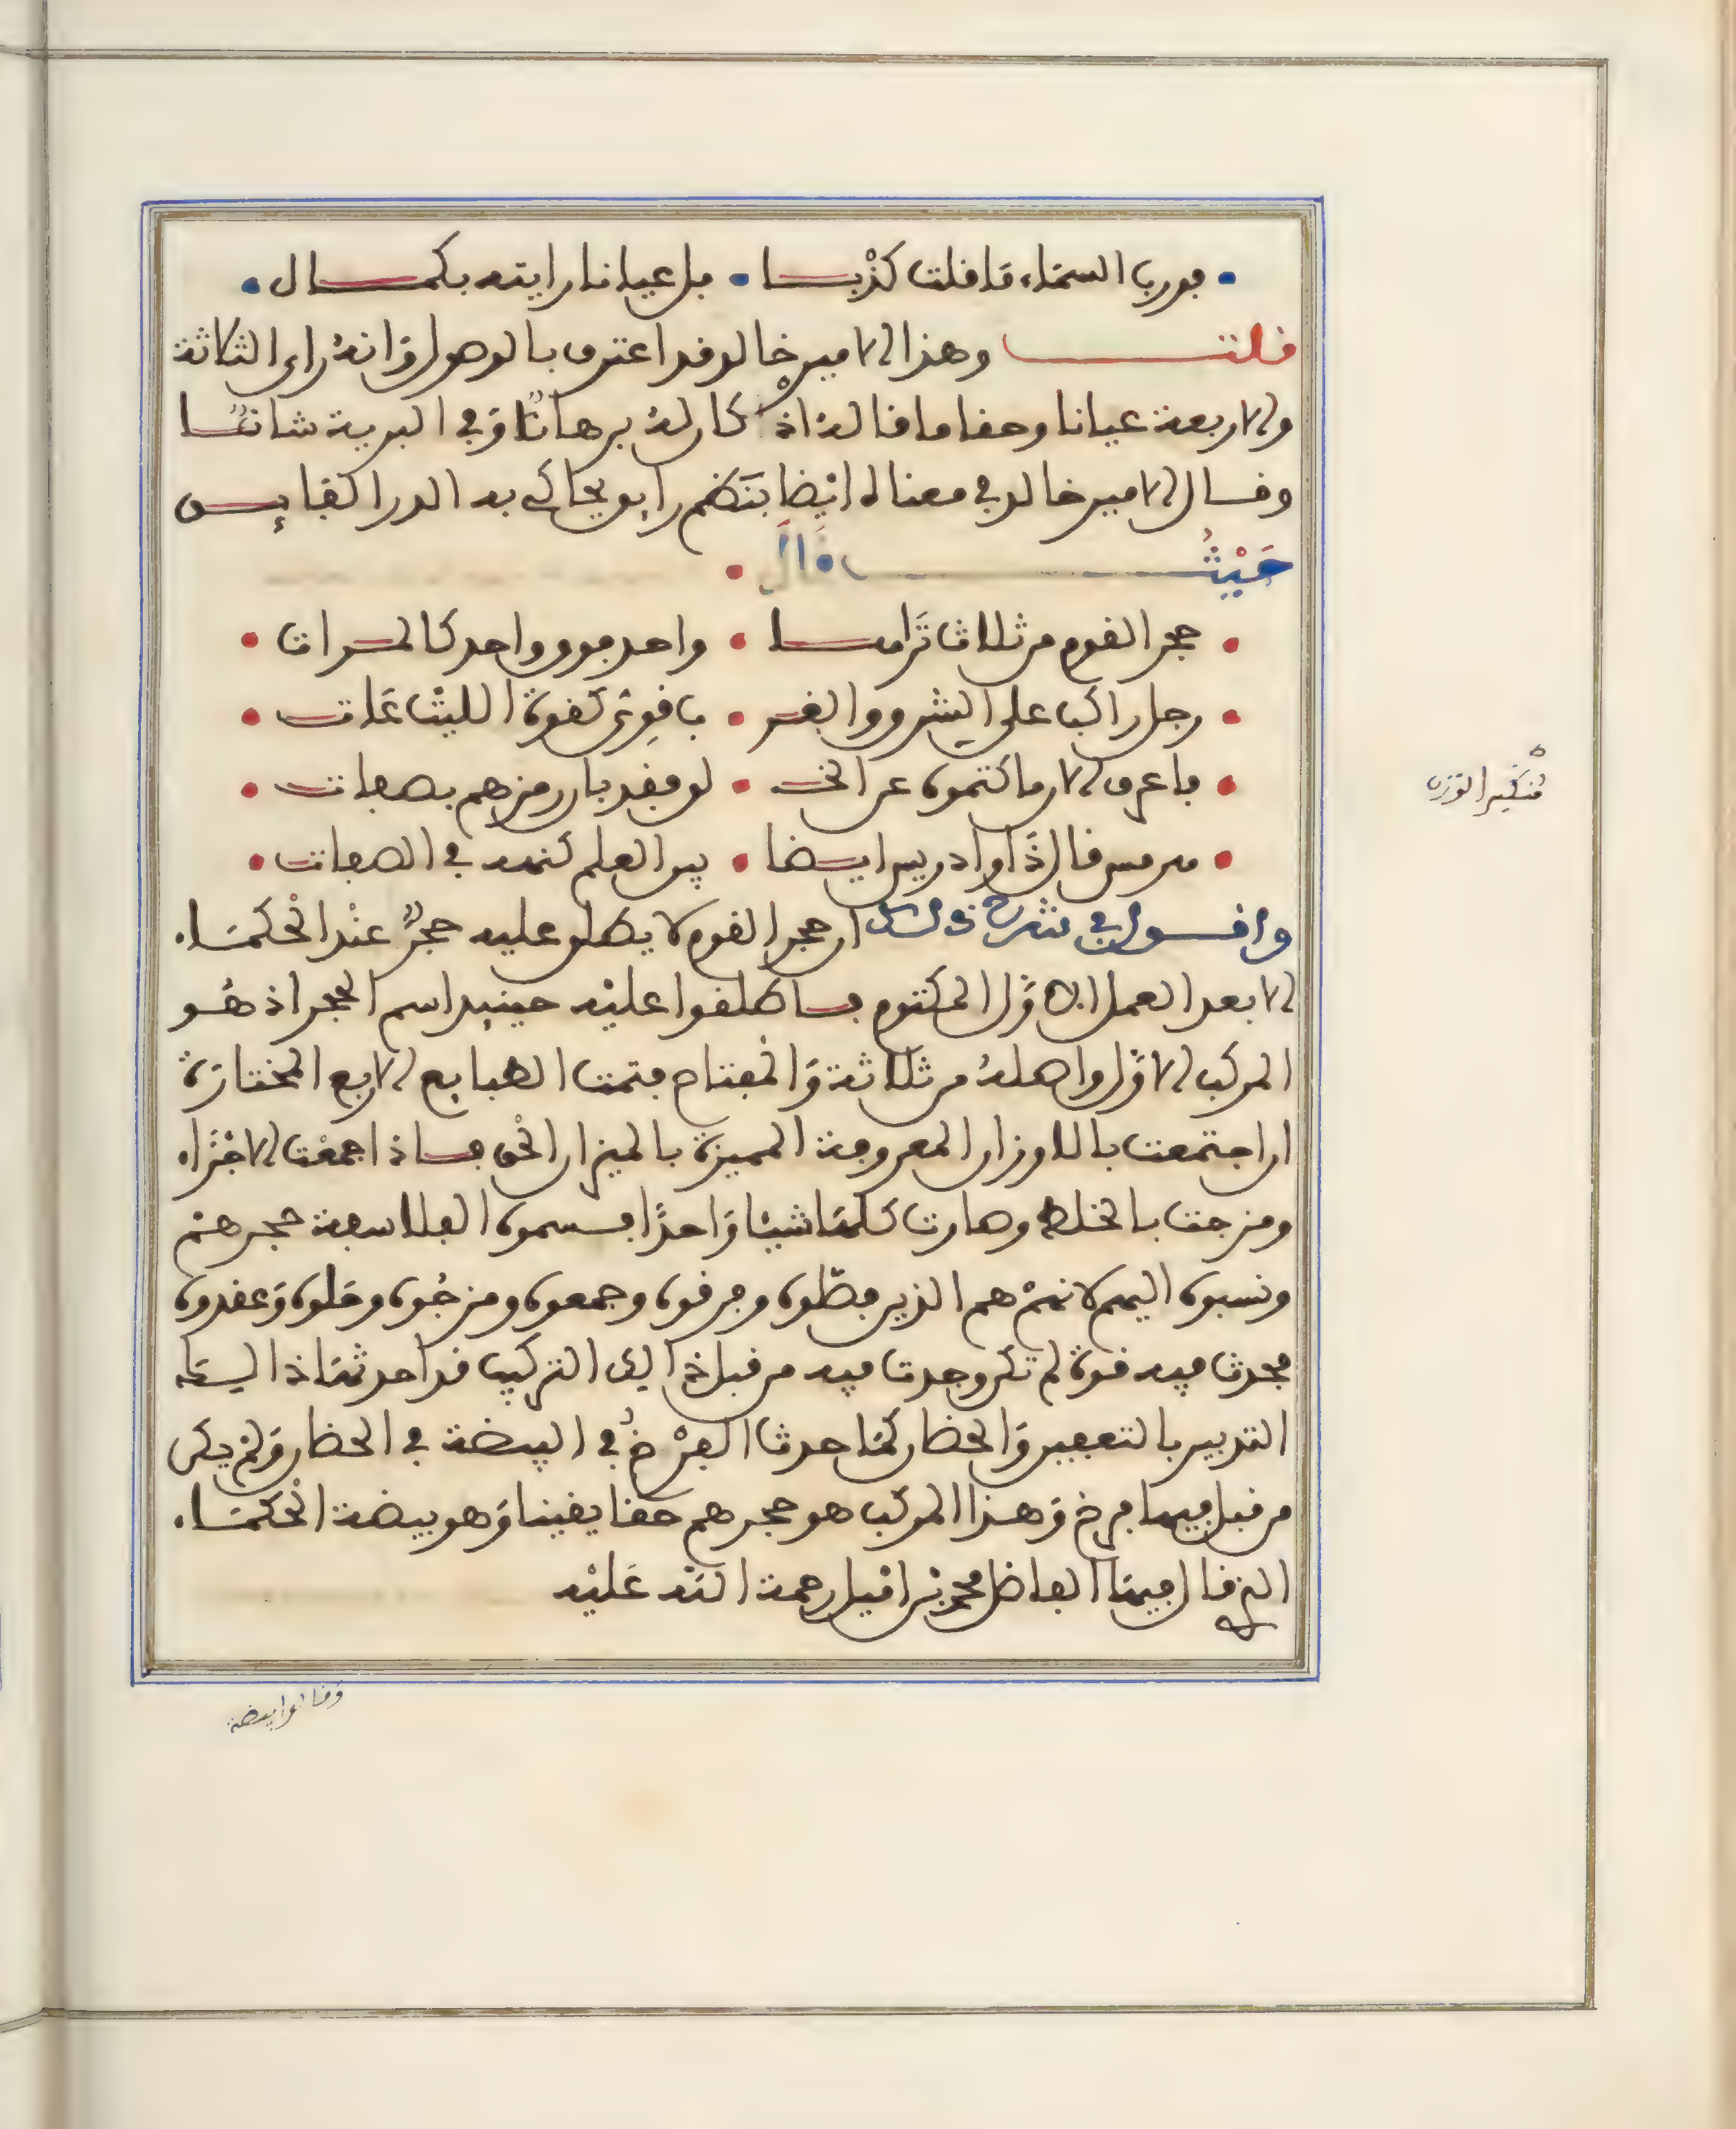 فورب السماء ما قلت كذبا • بل عيانا رايته بكمال •
قلت وهذا الامير خالد قد اعترف بالوصول وانه راى الثلاثة
والاربعة عيانا وحقا ما قاله اذ كان له برهانا وفي البرية شانا
وقال الامير خالد في معناه ايضا بنظم رايق يحاكي به الدر النفايس
حيث قال •
• حجر القوم من ثلاث تراه • واحد فوق واحد كالمرات •
• رجل راكب على الشرق والغرب • قوي كقوة الليث عات •
• فاعرف الان ما كتموه عن الخلق • لو فقد بان رمزهم بصفات •
• هرمس قال ذا وادريس ايضا • بير العلم كنهه في الصفات •
واقول في شرح ذلك ان حجر القوم لا يطلق عليه حجر عند الحكماء
الا بعد العمل الاول المكتوم فاطلقوا عليه حينيد اسم الحجر اذ هو
المركب الاول واصله من ثلاثة والمفتاح فتمت الطبايع الاربع المختارة
ان اجتمعت بالاوزان المعروفة المميزة بالميزان الحق فاذا جمعت الاجزاء
ومزجت بالخلط وصارت كلها شيئا واحدا فسموه الفلاسفة حجرهم
ونسبوه اليهم لانهم هم الذين فصلوه وفرقوه وجمعوه ومزجوه وحلوه وعقدوه
فحدث فيه قوة لم تكن وجدت فيه من قبل ذالك التركيب قد احدثها ذالك
التدبير بالتعفين والحضان كما حدث الفرخ في البيضة في الحضان ولم يكن
من قبل فيها فرخ وهذا المركب هو حجرهم حقا يقينا وهو بيضة الحكماء
التي قال فيها الفاضل محمد بن اميل رحمة الله عليه
وقالوا بيضة